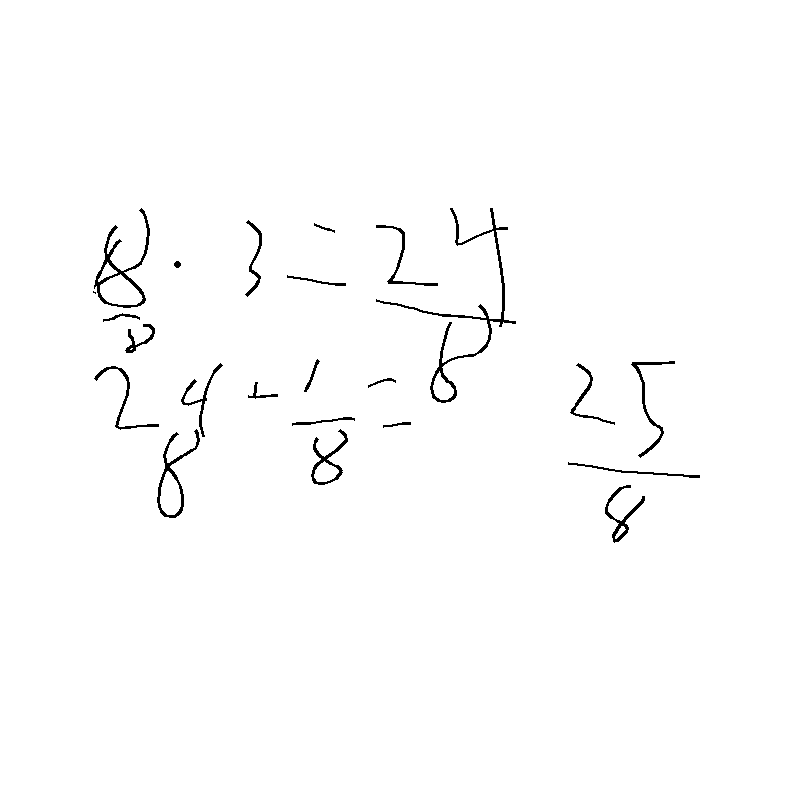 8/8 · 3 = 24/8
24/8 + 1/8 = 25/8